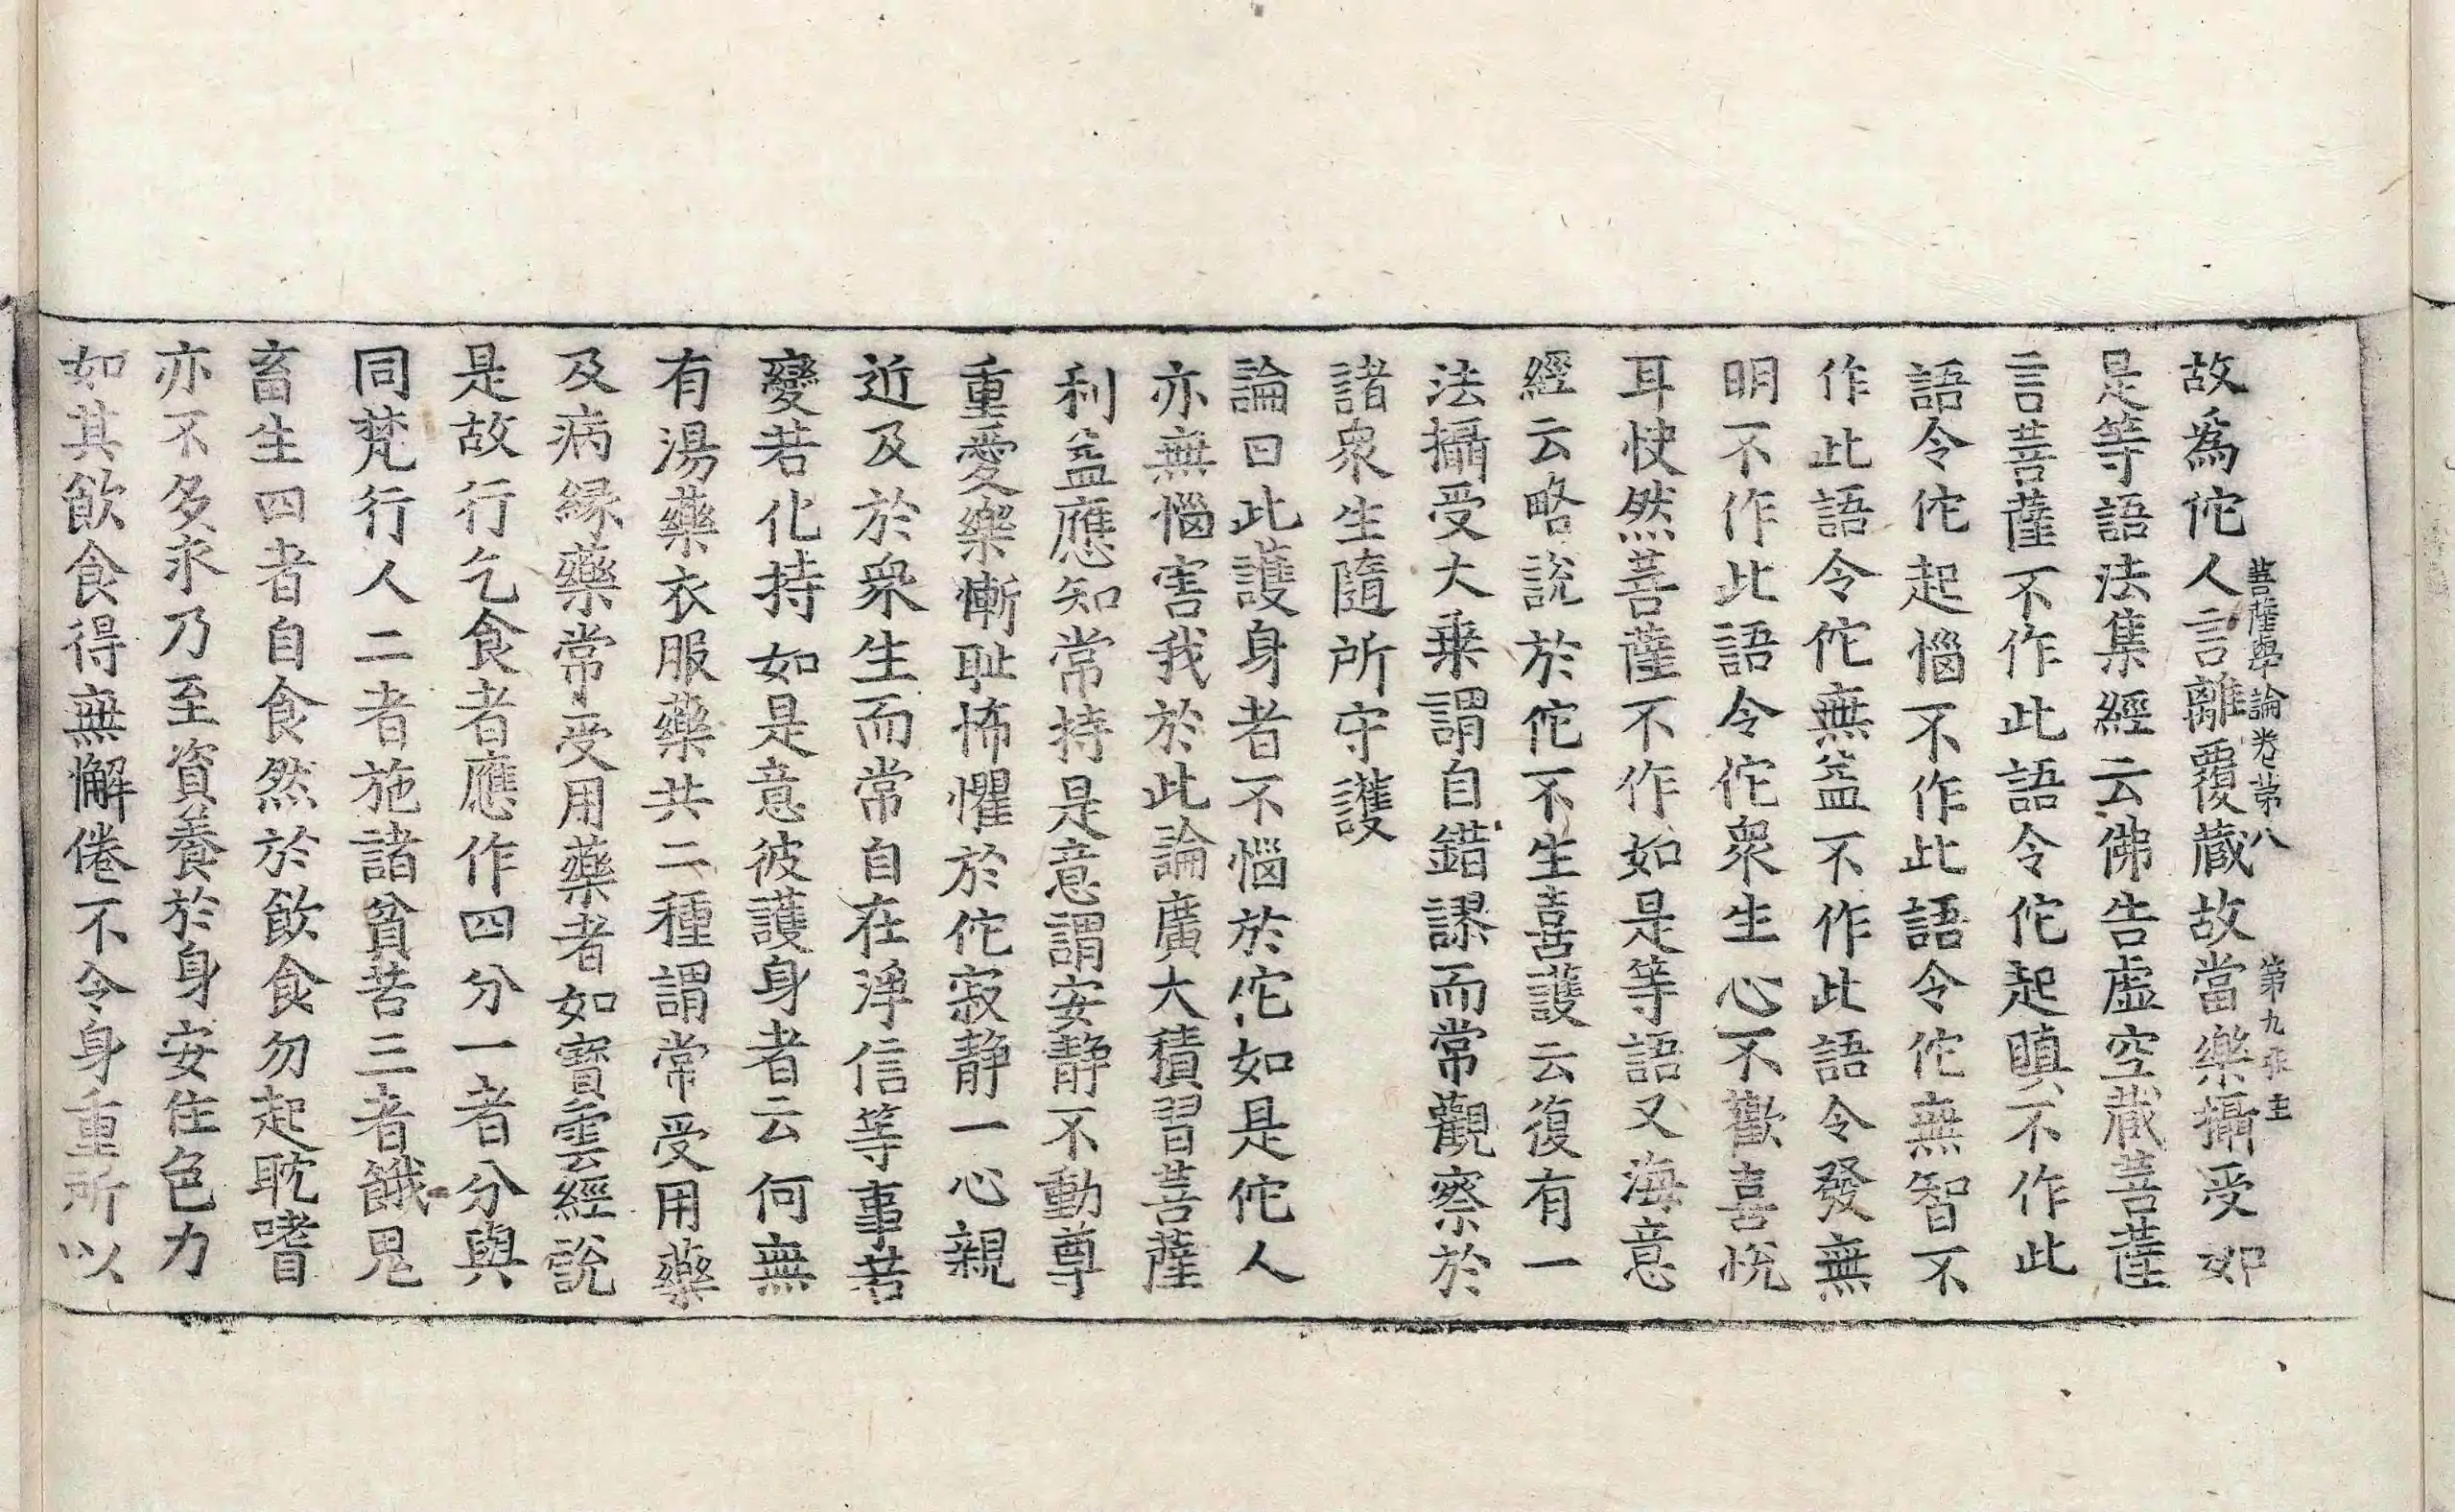 菩薩學論卷苐八 第九張 圭
故為佗人言離覆藏故當樂攝受如
是等語法集經云佛告虛空藏菩薩
言菩薩不作此語令佗起瞋不作此
語令佗起惱不作此語令佗無智不
作此語令佗無益不作此語令發無
明不作此語令佗衆生心不歡喜悅
耳快然菩薩不作如是等語又海意
經云略說於佗不生喜護云復有一
法攝受大乗謂自錯謬而常觀察於
諸衆生隨所守護
論曰此護身者不惱於佗如是佗人
亦無惱害我於此論廣大積習菩薩
利益應知常持是意謂安靜不動尊
重愛樂慚耻怖懼於佗寂靜一心親
近及於衆生而常自在淨信等事若
變若化持如是意彼護身者云何無
有湯藥衣服藥共二種謂常受用藥
及病緣藥常受用藥者如寶雲經說
是故行乞食者應作四分一者分與
同梵行人二者施諸貧苦三者餓鬼
畜生四者自食然於飲食勿起耽嗜
亦不多求乃至資養於身安住色力
如其飲食得無懈倦不令身重所以